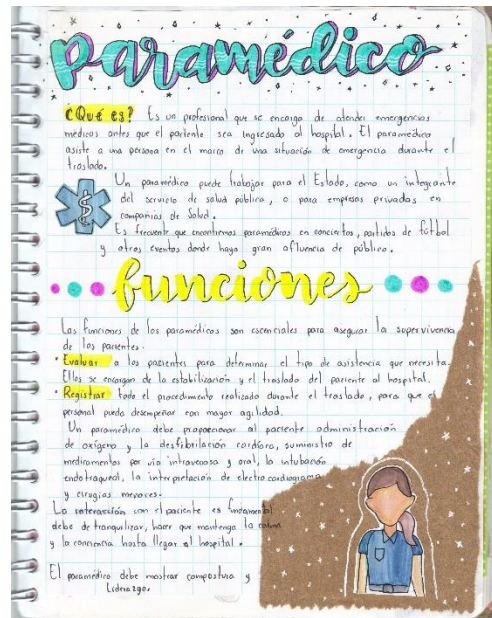 Paramédico
¿Qué es? Es un profesional que se encarga de atender emergencias
médicas antes que el paciente sea ingresado al hospital. El paramédico
asiste a una persona en el marco de una situación de emergencia durante el
traslado.
Un paramédico puede trabajar para el Estado, como un integrante
del servicio de salud pública, o para empresas privadas en
compañias de Salud.
Es frecuente que encontremos paramédicos en conciertos, partidos de fútbol
y otros eventos donde haya gran afluencia de público.
funciones
Las funciones de los paramédicos son escenciales para asegurar la supervivencia
de los pacientes.
• Evaluar a los pacientes para determinar el tipo de asistencia que necesita.
Ellos se encargan de la estabilización y el traslado del paciente al hospital.
• Registrar todo el procedimiento realizado durante el traslado, para que el
personal pueda desempeñar con mayor agilidad.
Un paramédico debe proporcionar al paciente administración
de oxígeno y la desfibrilación cardíaca, suministro de
medicamentos por vía intravenosa y oral, la intubación
endotraqueal, la interpretación de electrocardiograma
y cirugías menores.
La interacción con el paciente es fundamental
debe de tranquilizar, hacer que mantenga la calma
y la conciencia hasta llegar al hospital.
El paramédico debe mostrar compostura y
Liderazgo.